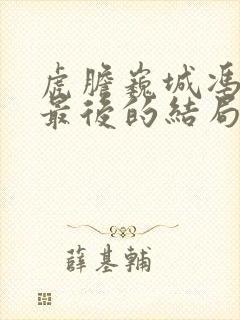 虎膽巍城馮
最後的結局
薛基輔